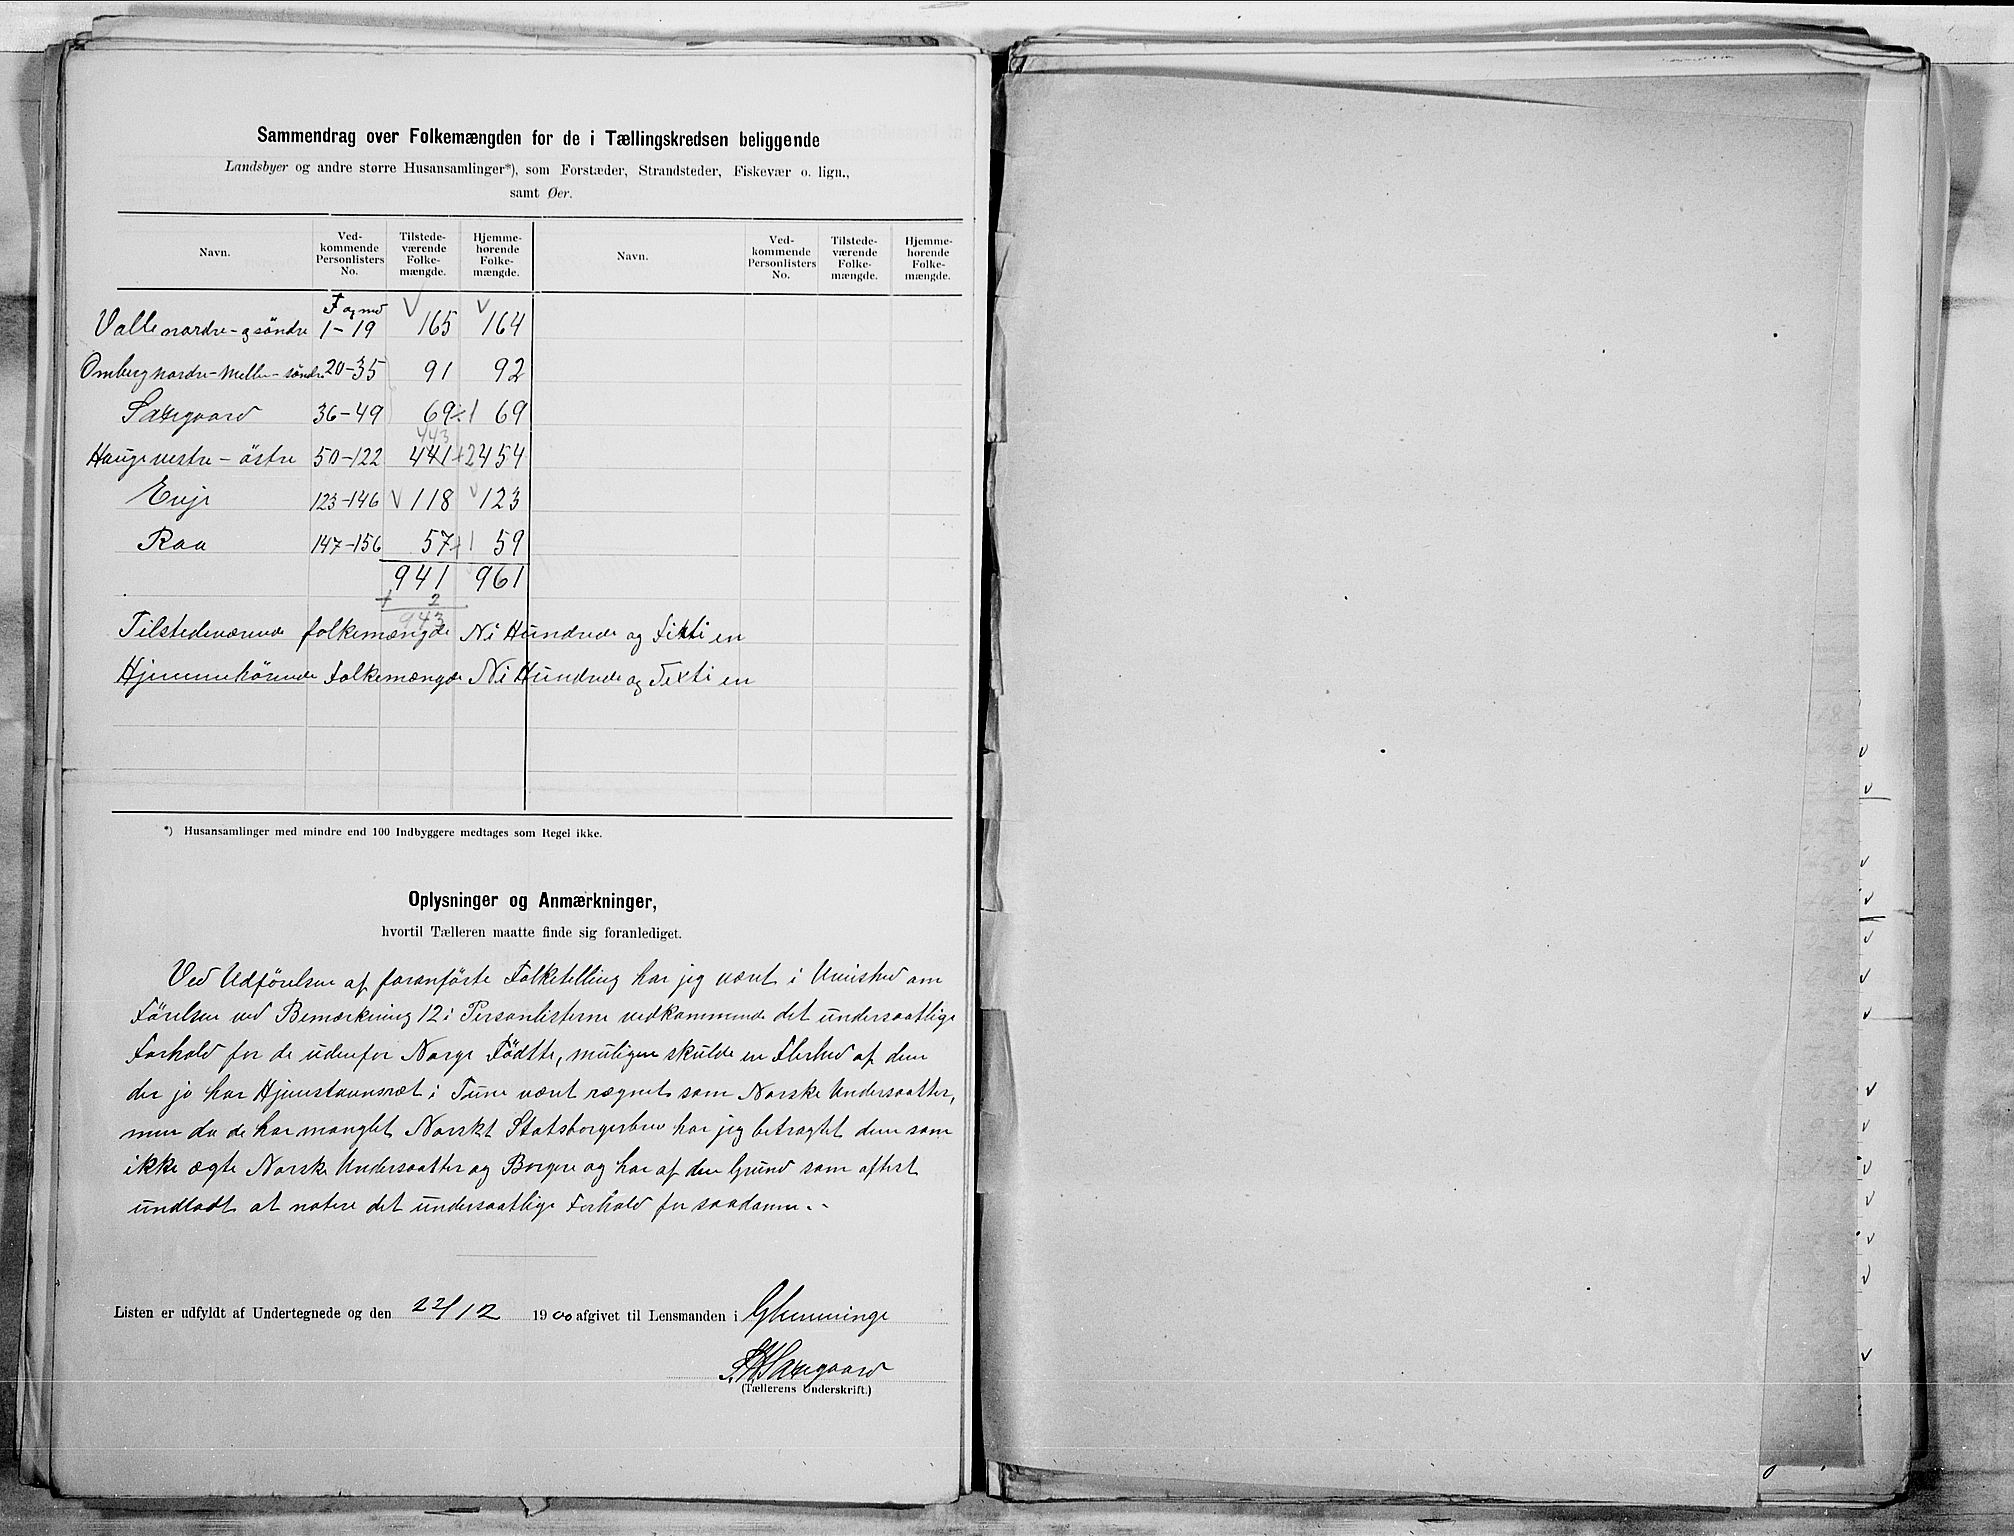 Sammendrag over Folkemængden for de i Tællingskredsen beliggende
Landsbyer og andre større Husansamlinger*), som Forstæder, Strandsteder, Fiskevær o. lign.,
samt Øer.
Navn. Ved-kommende Personlisters No. Tilstede-værende Folke-mængde. Hjemme-hørende Folke-mængde. Navn. Ved-kommende Personlisters No. Tilstede-værende Folke-mængde. Hjemme-hørende Folke-mængde.
F og med
Valle nordre - og söndre 1-19 √ 165 √ 164
Omberg nordre - Mello - söndre 20-35 91 92
Saxegaard 36-49 69 ÷1 69
443
Hauge vestre - östre 50-122 441 +2 454
Evje 123-146 √ 118 √ 123
Raa 147-156 57 +1 59
941 961
+ 2
943
Tilstedeværende folkemængde Ni Hundrede og Firti en
Hjemmehörende Folkemængde Ni Hundrede og Sexti en
*) Husansamlinger med mindre end 100 Indbyggere medtages som Regel ikke.
Oplysninger og Anmærkninger,
hvortil Tælleren maatte finde sig foranlediget.
Ved Udförelsen af foranförte Folketelling har jeg været i Uvished om
Förelsen ved Bemærkning 12 i Personlisterne vedkommende det undersaatlige
Forhold for de udenfor Norge Födtte, muligen skulde en Flerhed af dem
der jo har Hjemstavnsræt i Tune været rægnet som Norske Undersaatter,
men da de har manglet Norskt Statsborgerbrev har jeg betragtet dem som
ikke ægte Norske Undersaatter og Borgere og har af den Grund som oftest
undladt at notere det undersaatlige Forhold for saadanne. -
Listen er udfyldt af Undertegnede og den 22/12 1900 afgivet til Lensmanden i Glemminge
Saxegaard
(Tællerens Underskrift.)